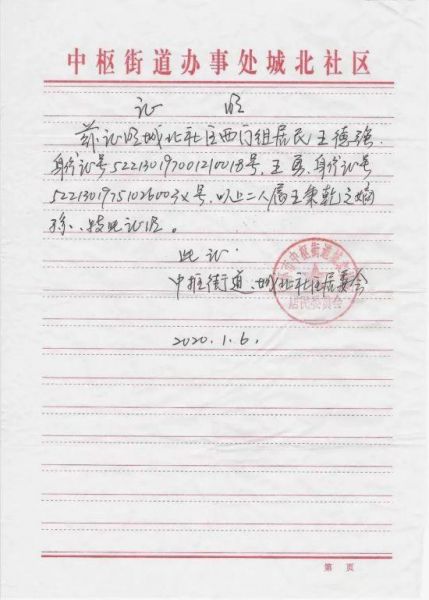 中枢街道办事处城北社区
证明
兹证明城北社区西门组居民王德强,
身份证号522130197001210018号,王勇,身份证号
522130197510260032号,以上二人属王秉乾之嫡
孙,特此证明。
此证
中枢街道城北社区居委会
2020.1.6.
第 页